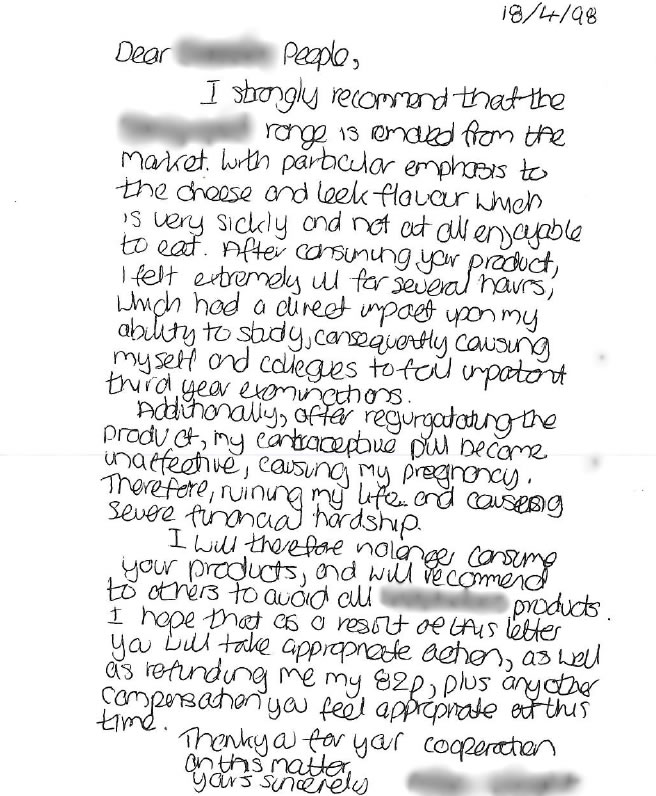 18/4/98
Dear People,
I strongly recommend that the
range is removed from the
market. With particular emphasis to
the cheese and leek flavour which
is very sickly and not at all enjoyable
to eat. After consuming your product,
I felt extremely ill for several hours,
which had a direct impact upon my
ability to study, consequently causing
myself and collegues to fail impatant
third year examinations.
Additionally, after regurgatating the
product, my contraceptive pill became
inaffective, causing my pregnancy.
Therefore, ruining my life and causing
severe financial hardship.
I will therefore nolonger consume
your products, and will recommend
to others to avoid all products.
I hope that as a result of this letter
you will take appropriate action, as well
as refunding me my 82p, plus any other
compensation you feel appropriate at this
time.
Thankyou for your cooperation
on this matter
yours sincerely